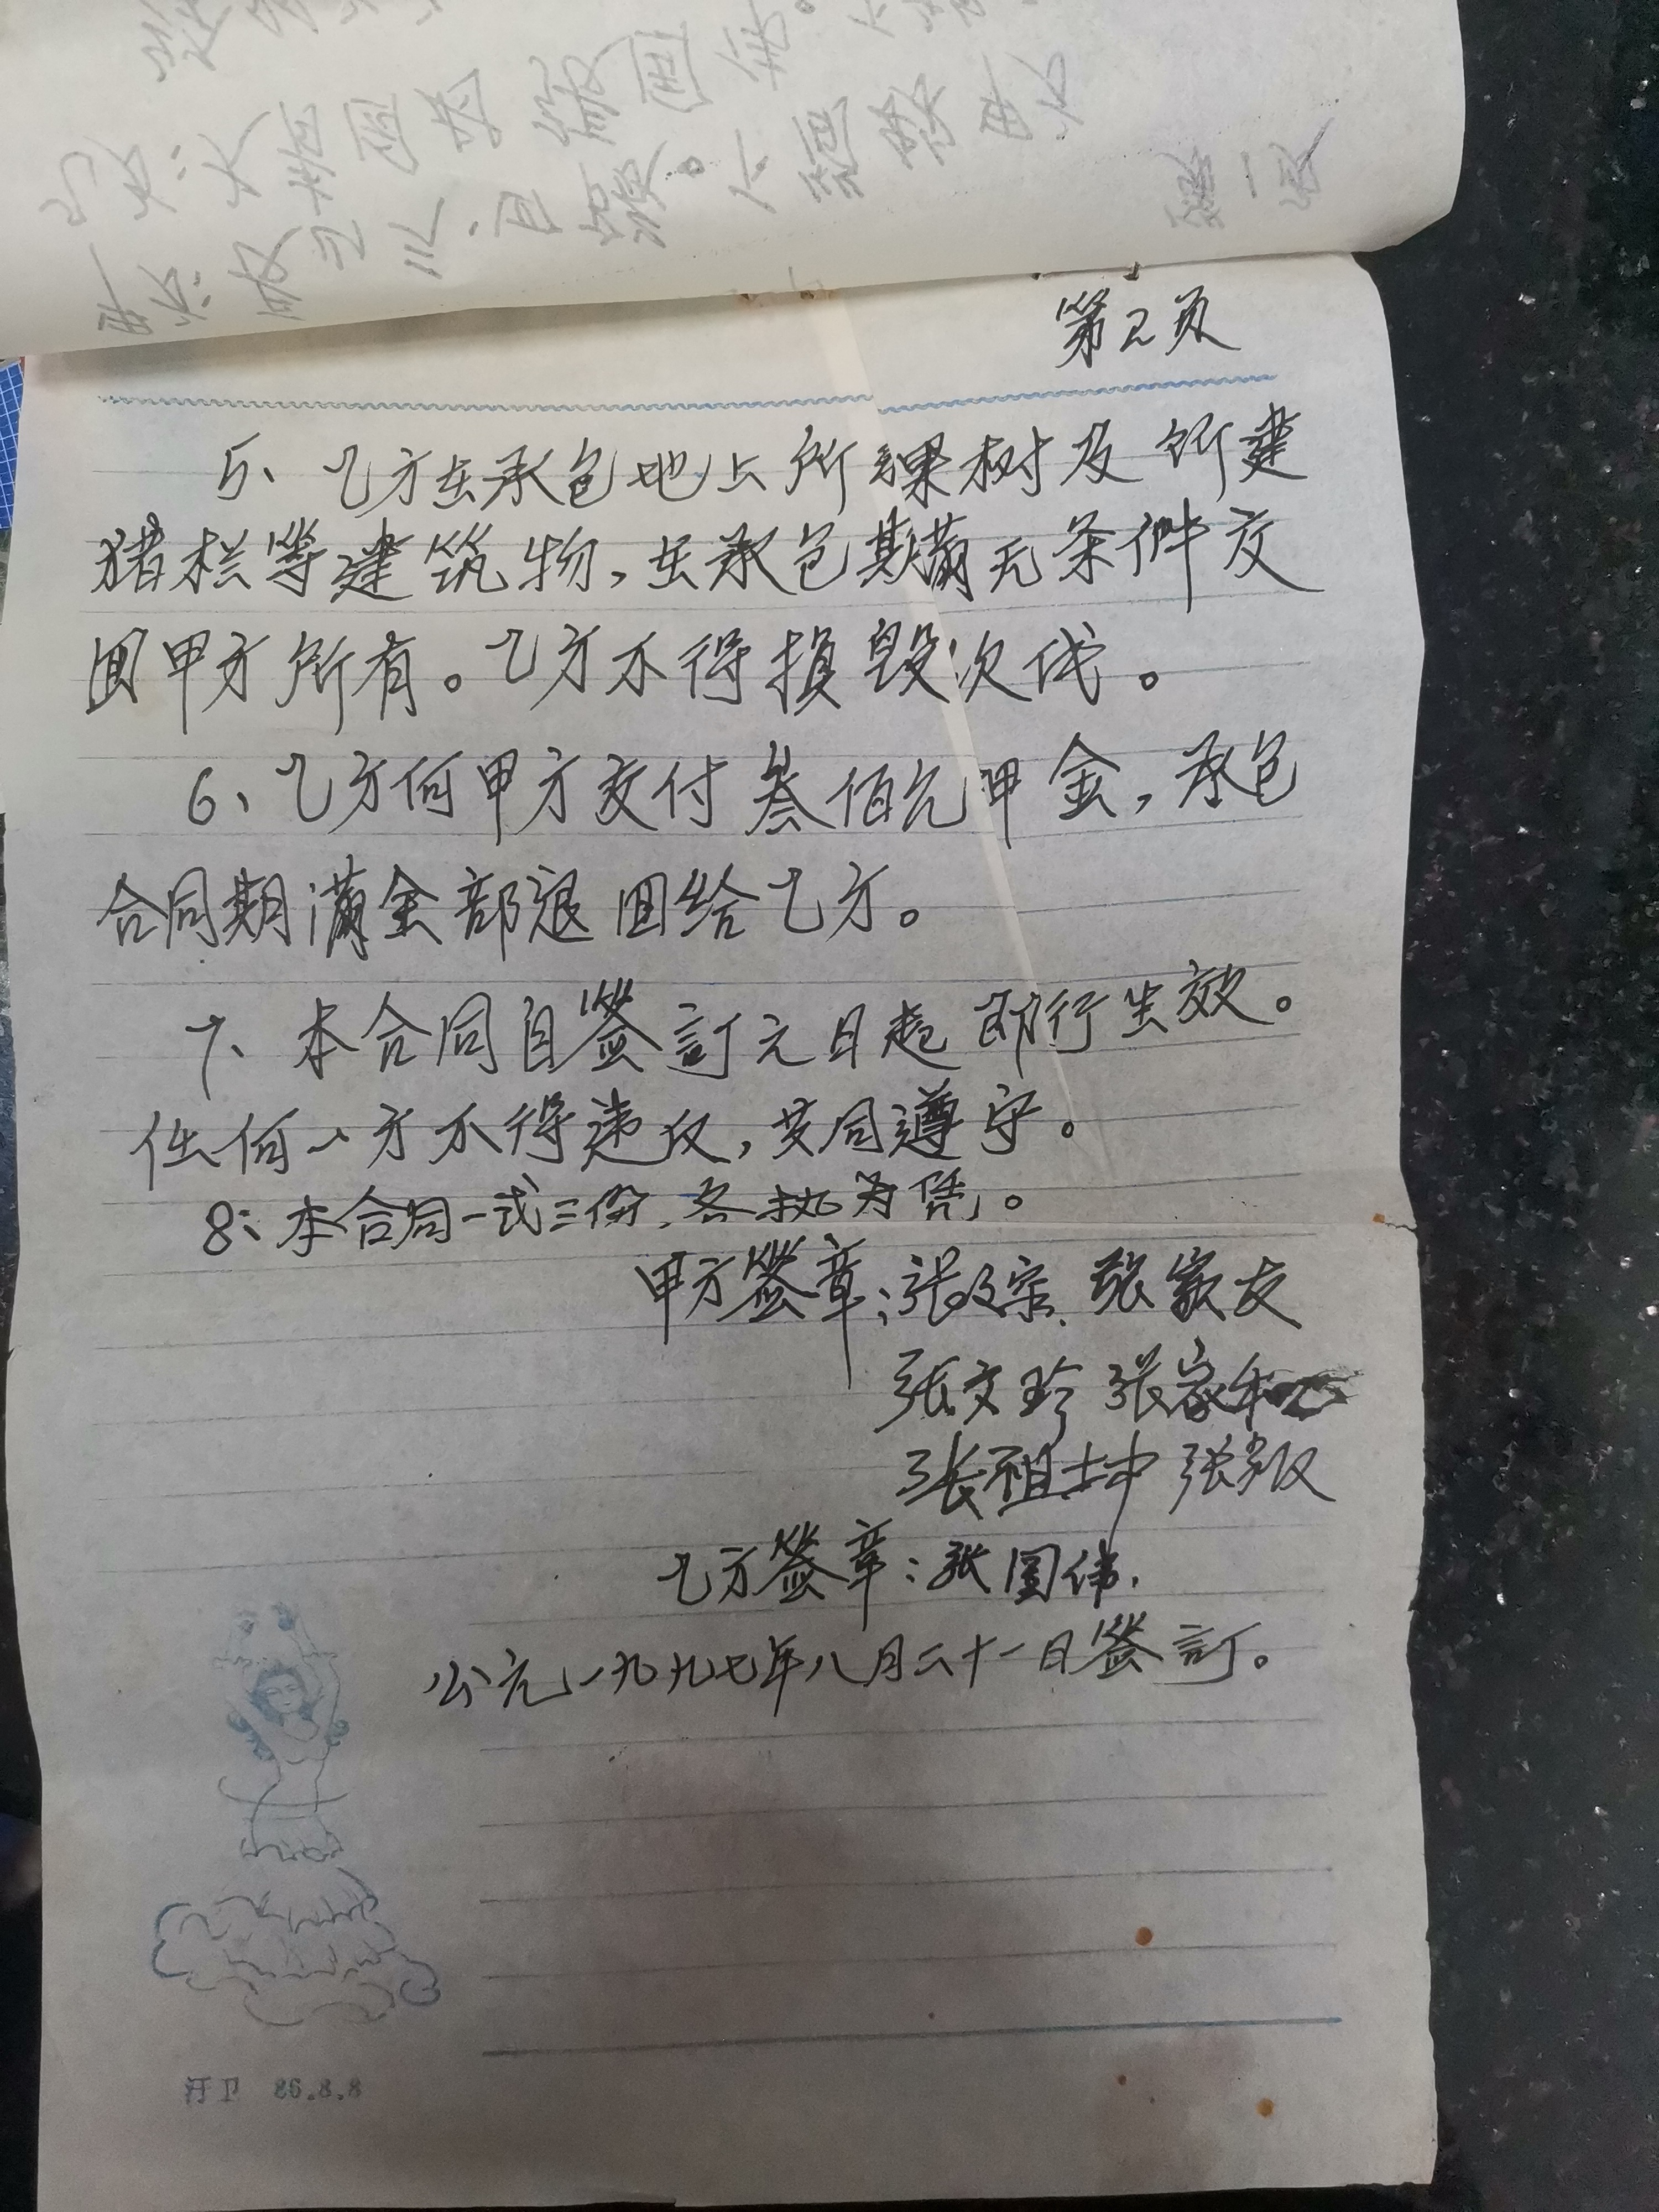 第2页
5、乙方在承包地上所裸树及所建
猪栏等建筑物,在承包期满无条件交
回甲方所有。乙方不得损毁次伐。
6、乙方何甲方交付叁佰元甲金,承包
合同期满全部退回给乙方。
7、本合同自签訂元日起即行生效。
任何一方不得违反,共同遵守。
8:本合同一式三份.各执为凭。
甲方签章:张 张家友
张文珍 张家和
张祖坤 张
乙方签章:张国伟.
公元一九九七年八月二十一日签訂。
86.8.8